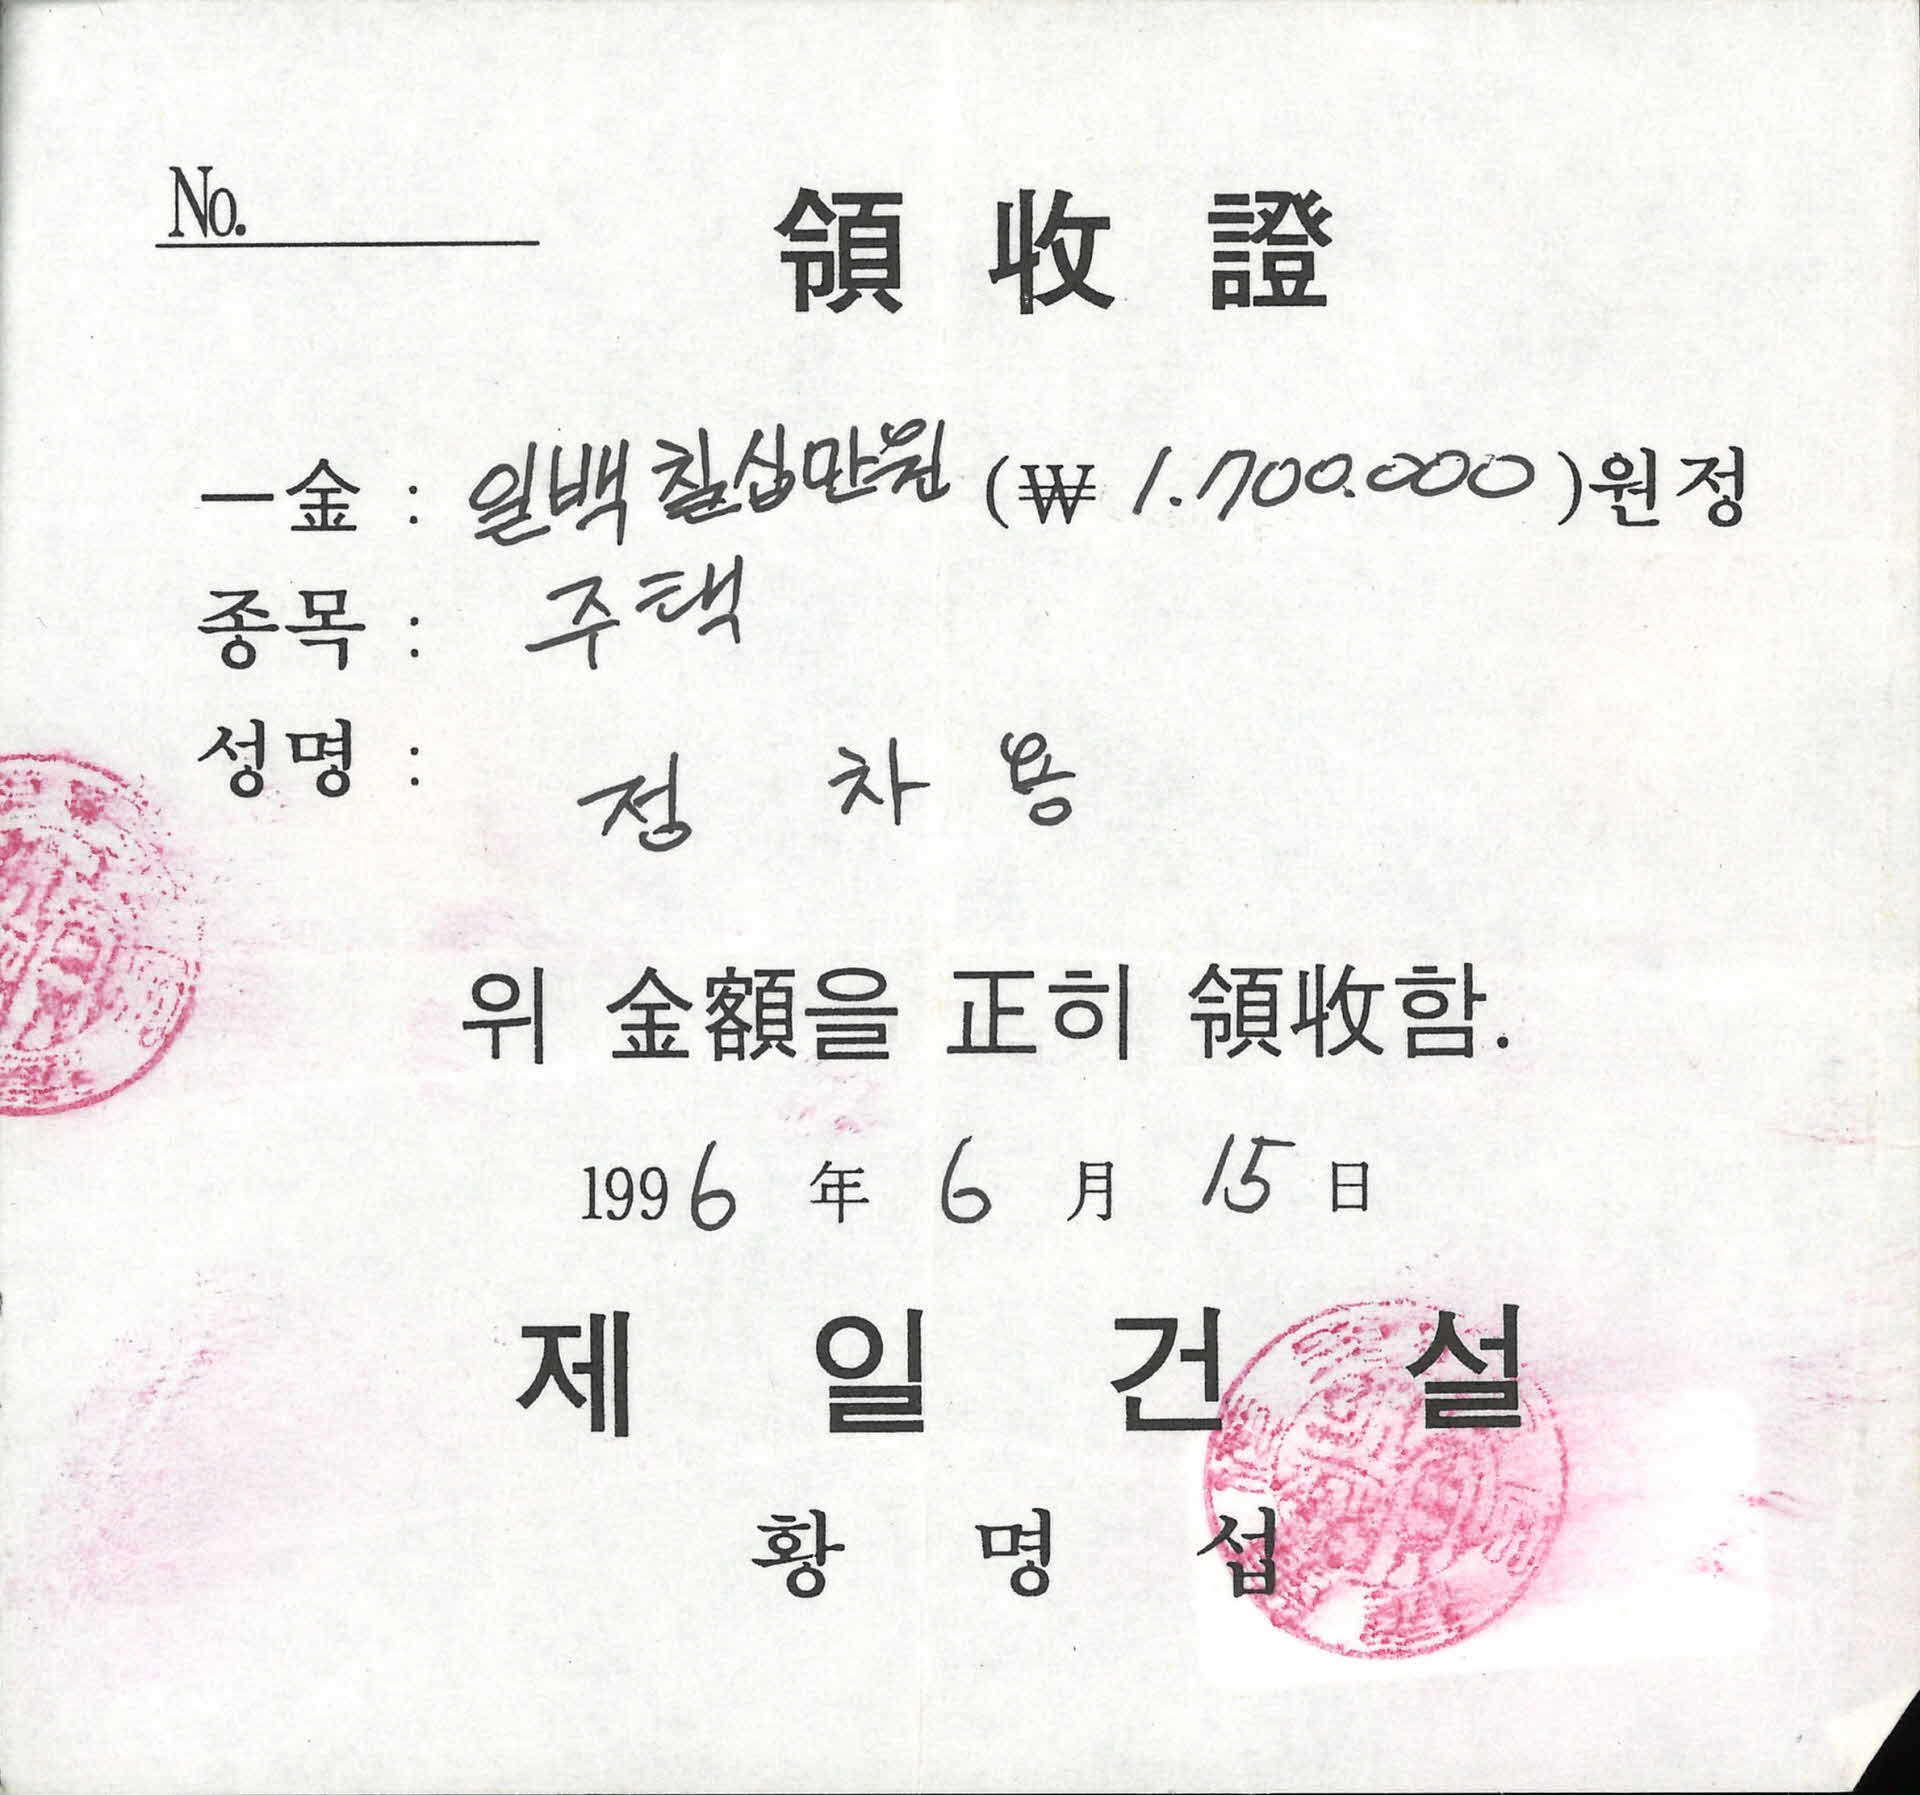 No.
領收證
一金 : 일백칠십만원 (₩ 1.700.000)원정
종목 : 주택
성명 : 정 차 용
위 金額을 正히 領收함.
1996 年 6 月 15 日
제 일 건 설
황 명 섭